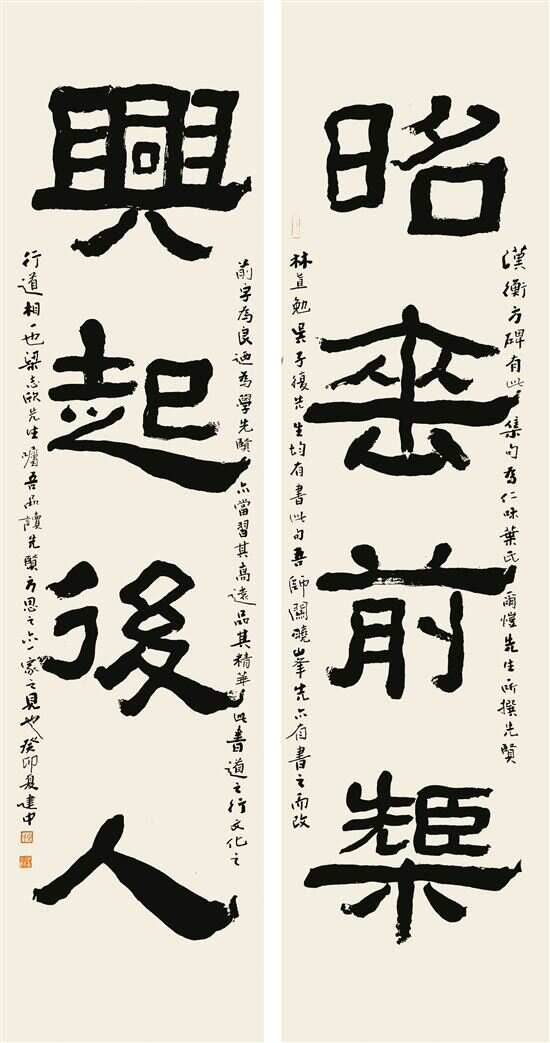 昭垂前榘
漢衡方碑有此集句為仁味葉氏爾愷先生所撰先賢
林直勉吳子復先生均有書此句吾師關曉峯先亦有書之而改
興起後人
前字為良廼為學先賢亦當習其高遠品其精華此書道之行文化之
行道相一也梁志欣先生囑吾品讀先賢方思之亦一家之見也癸卯夏建中